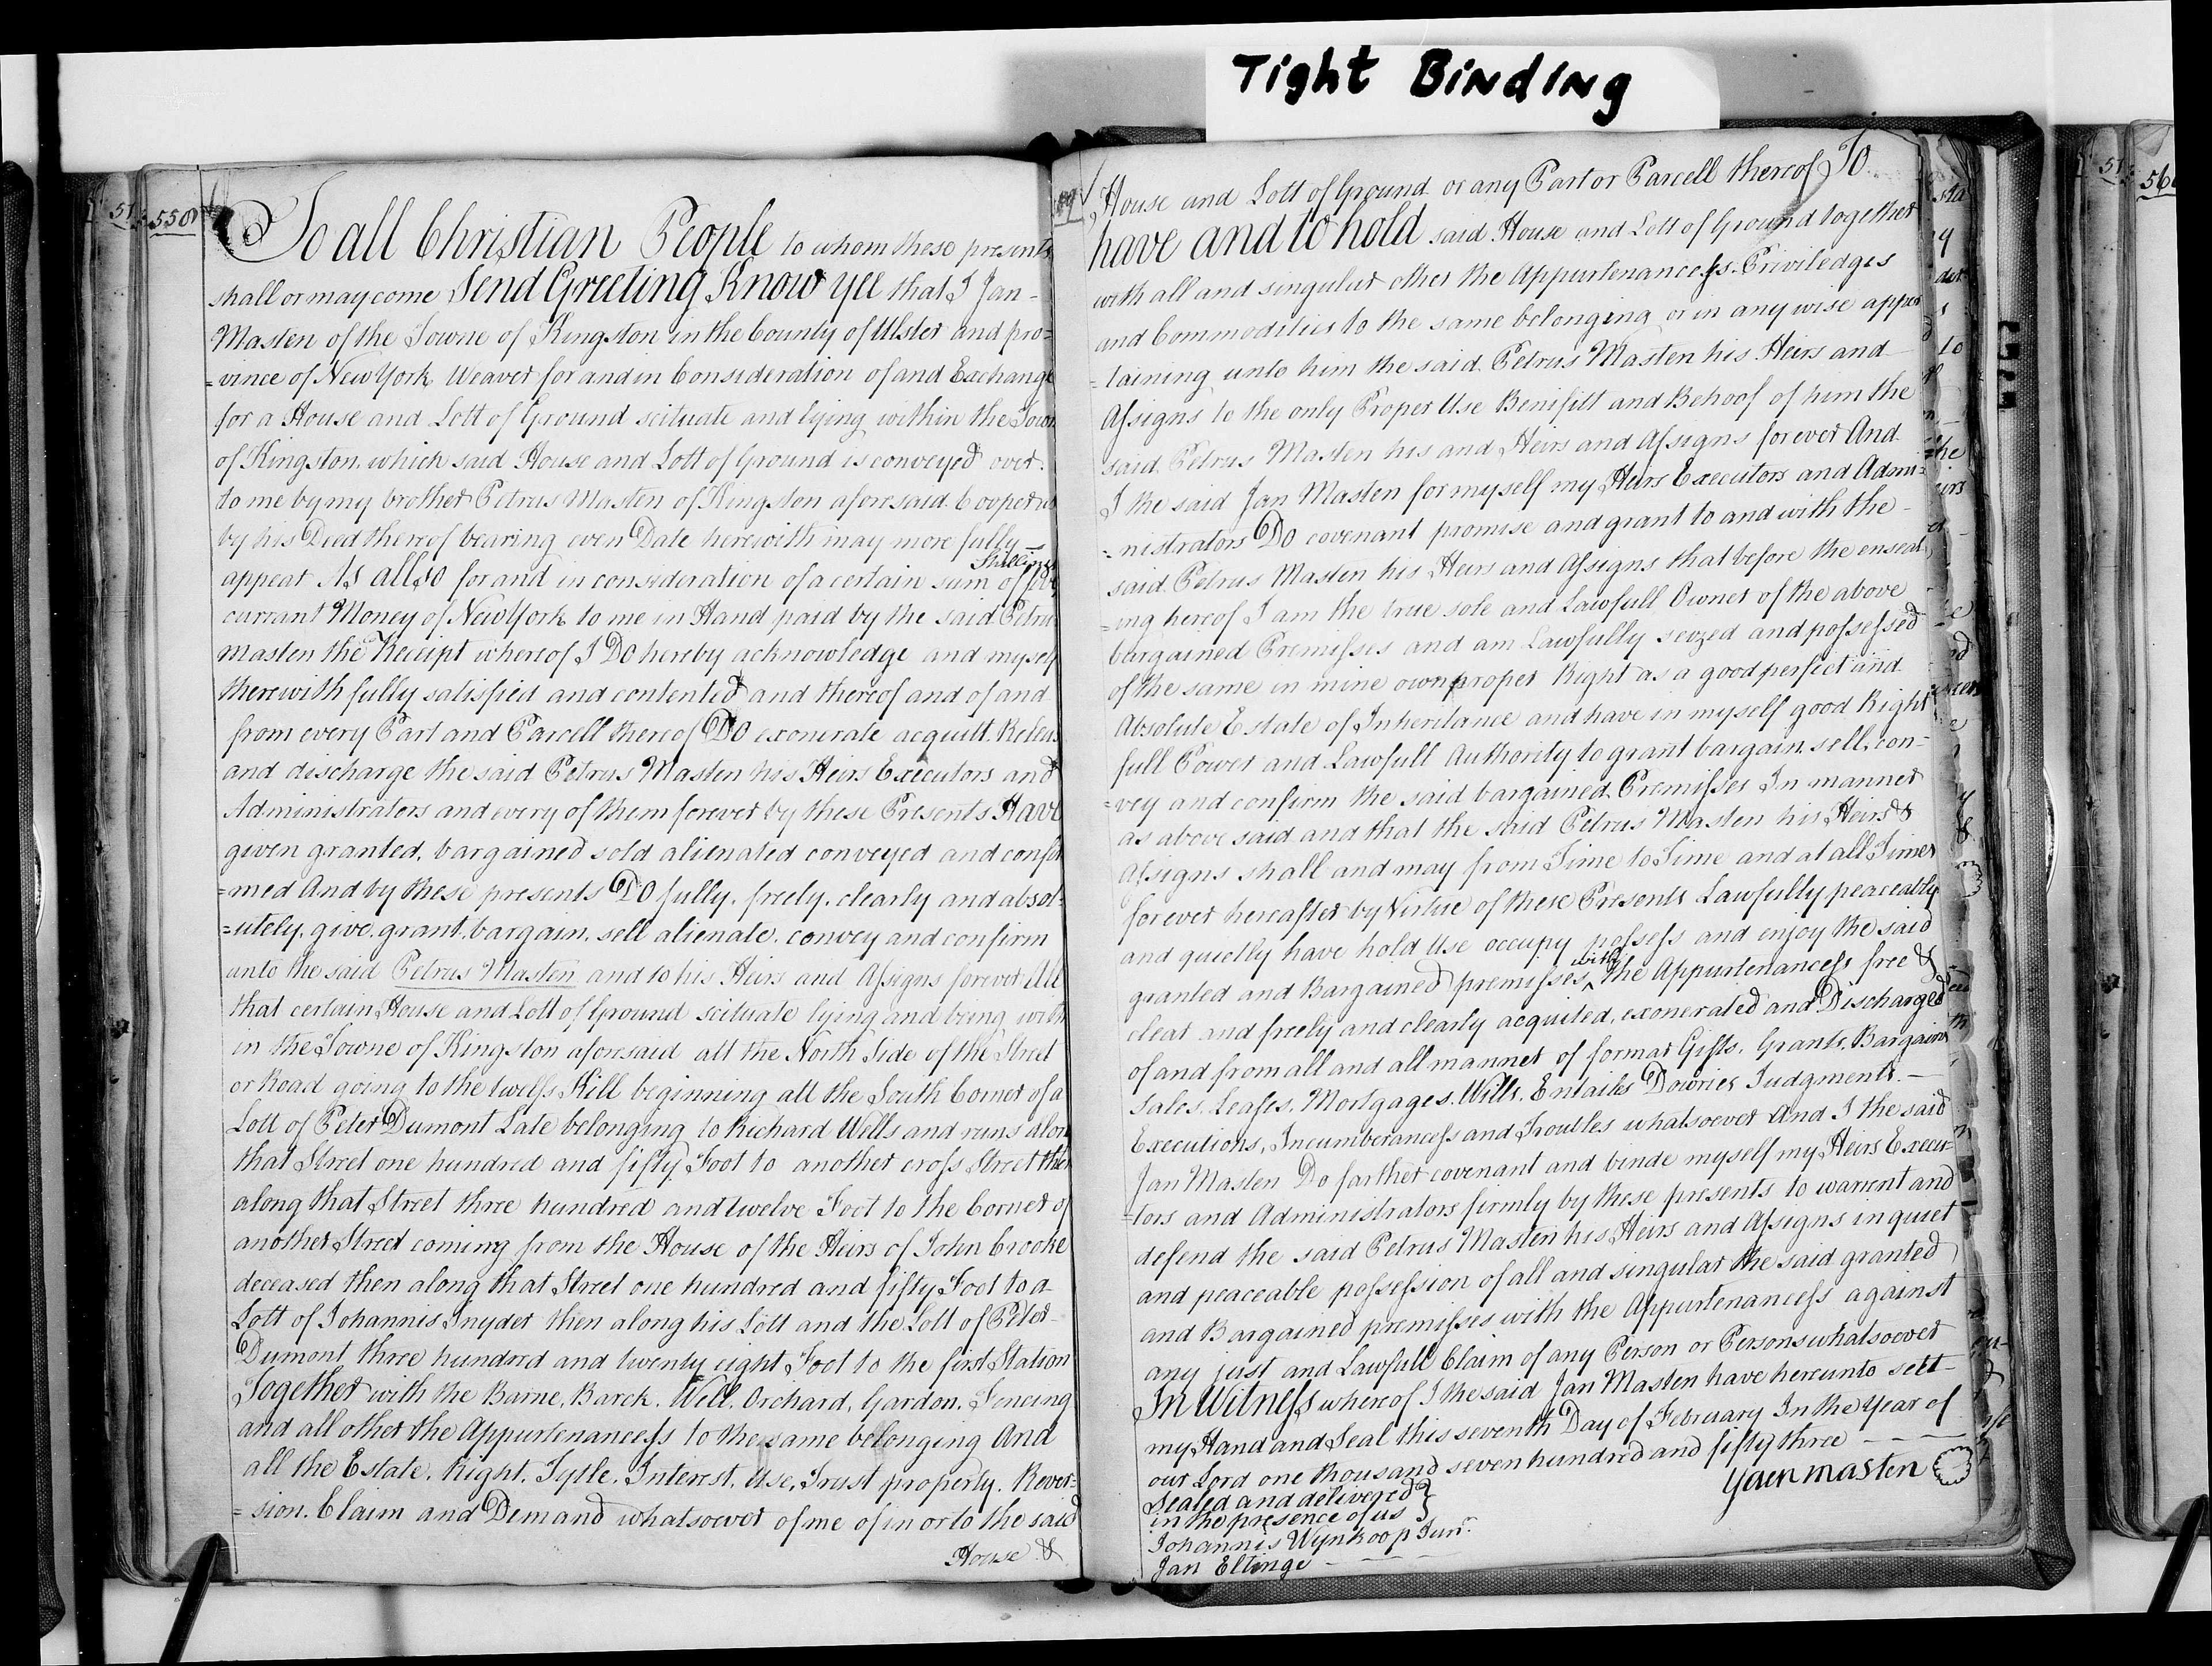 Tight Binding
550
To all Christian People to whom these presents
shall or may come Send Greeting Know yee that I Jan-
Masten of the Towne of Kingston in the County of Ulster and pro=
=vince of New York Weaver for and in Consideration of and Exchange
for a House and Lott of Ground scituate and lying within the Town
of Kingston, which said House and Lott of Ground is conveyed over
to me by my brother Petrus Masten of Kingston aforesaid Cooper as
by his Deed thereof bearing even Date herewith may more fully
appear As allso for and in consideration of a certain sum of
currant Money of New York to me in Hand paid by the said Petrus
Masten the Receipt whereof I Do hereby acknowledge and myself
therewith fully satisfied and contented and thereof and of and
from every Part and Parcell thereof Do exonerate acquitt Releas
and discharge the said Petrus Masten his Heirs Executors and
Administrators and every of them forever by these Presents Have
given granted, bargained sold alienated conveyed and confir
=med And by these presents Do fully, freely, clearly and absol=
=utely, give, grant, bargain, sell alienate, convey and confirm
unto the said Petrus Masten and to his Heirs and Assigns forever All
that certain House and Lott of Ground scituate lying and being with
in the Towne of Kingston aforesaid att the North Side of the Street
or Road going to the twelfs Kill beginning att the South Corner of a
Lott of Peter Dumont Late belonging to Richard Wells and runs along
that Street one hundred and fifty Foot to another cross Street then
along that Street three hundred and twelve Foot to the Corner of
another Street coming from the House of the Heirs of John Crooke
deceased then along that Street one hundred and fifty Foot to a
Lott of Johannis Snyder then along his Lott and the Lott of Peter-
Dumont three hundred and twenty eight Foot to the first Station
Together with the Barne, Barck, Well, Orchard, Gardon, Fencing
and all other the Appurtenancess to the same belonging And
all the Estate, Right, Tytle, Interest, Use, Trust property, Rever=
=sion, Claim and Demand whatsoever of me of in or to the said
House &
House and Lott of Ground or any Part or Parcell thereof To
have and to hold said House and Lott of Ground together
with all and singular other the Appurtenancess Priviledges
and Commodities to the same belonging or in any wise apper
=taining unto him the said Petrus Masten his Heirs and
Assigns to the only Proper Use Benifitt and Behoof of him the
said Petrus Masten his and Heirs and Assigns forever And
I the said Jan Masten for myself my Heirs Executors and Admi=
=nistrators Do covenant promise and grant to and with the-
said Petrus Masten his Heirs and Assigns that before the enseal
=ing hereof I am the true sole and Lawfull Owner of the above
bargained Premisses and am Lawfully seyzed and possessed
of the same in mine own proper Right as a good perfect and
Absolute Estate of Inheritance and have in myself good Right
full Power and Lawfull Authority to grant bargain, sell, con=
=vey and confirm the said bargained Premisses In manner
as above said and that the said Petrus Masten his Heirs &
Assigns shall and may from Time to Time and at all Times
forever hereafter by Virtue of these Presents Lawfully peaceably
and quietly have hold Use occupy possess and enjoy the said
granted and Bargained premisses ^with the Appurtenancess free &
clear and freely and clearly acquited, exonerated and Discharged
of and from all and all manner of former Gifts, Grants, Bargains
Sales, Leases, Mortgages, Wills, Entails Dowries Judgments, -
Executions, Incumberancess and Troubles whatsoever And I the said
Jan Masten Do farther covenant and binde myself my Heirs Execu=
=tors and Administrators firmly by these presents to warrent and
defend the said Petrus Masten his Heirs and Assigns in quiet
and peaceable possession of all and singular the said granted
and Bargained premisses with the Appurtenancess against
any just and Lawfull Claim of any Person or Persons whatsoever
In Witness whereof I the said Jan Masten have hereunto sett-
my Hand and Seal this seventh Day of February In the Year of
our Lord one thousand seven hundred and fifty three - - - -
Yaen masten
Sealed and delivered }
in the presence of us }
Johannis Wynkoop Junr.
Jan Eltinge - - - -